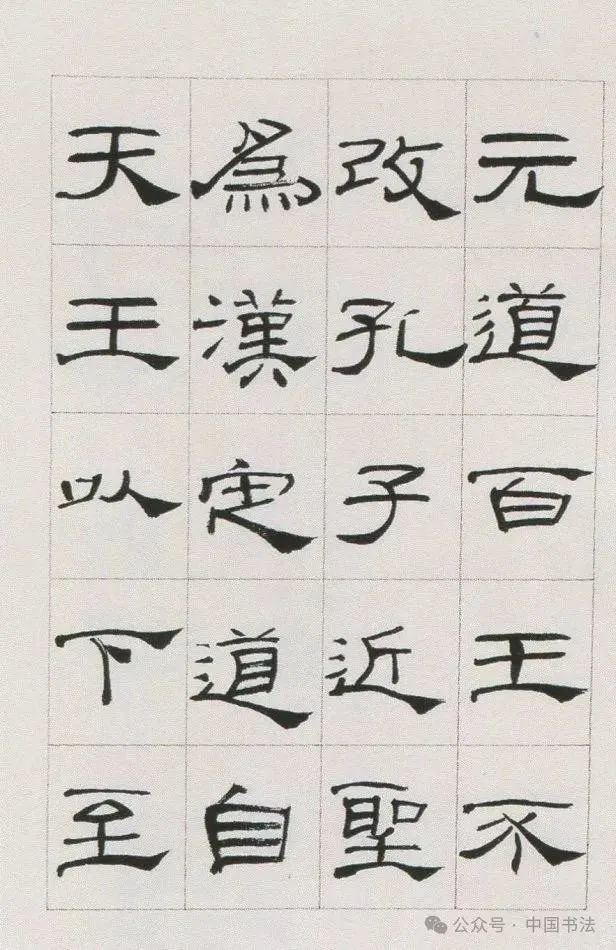 元道百王不
改孔子近聖
為漢定道自
天王以下至
公众号 · 中国书法